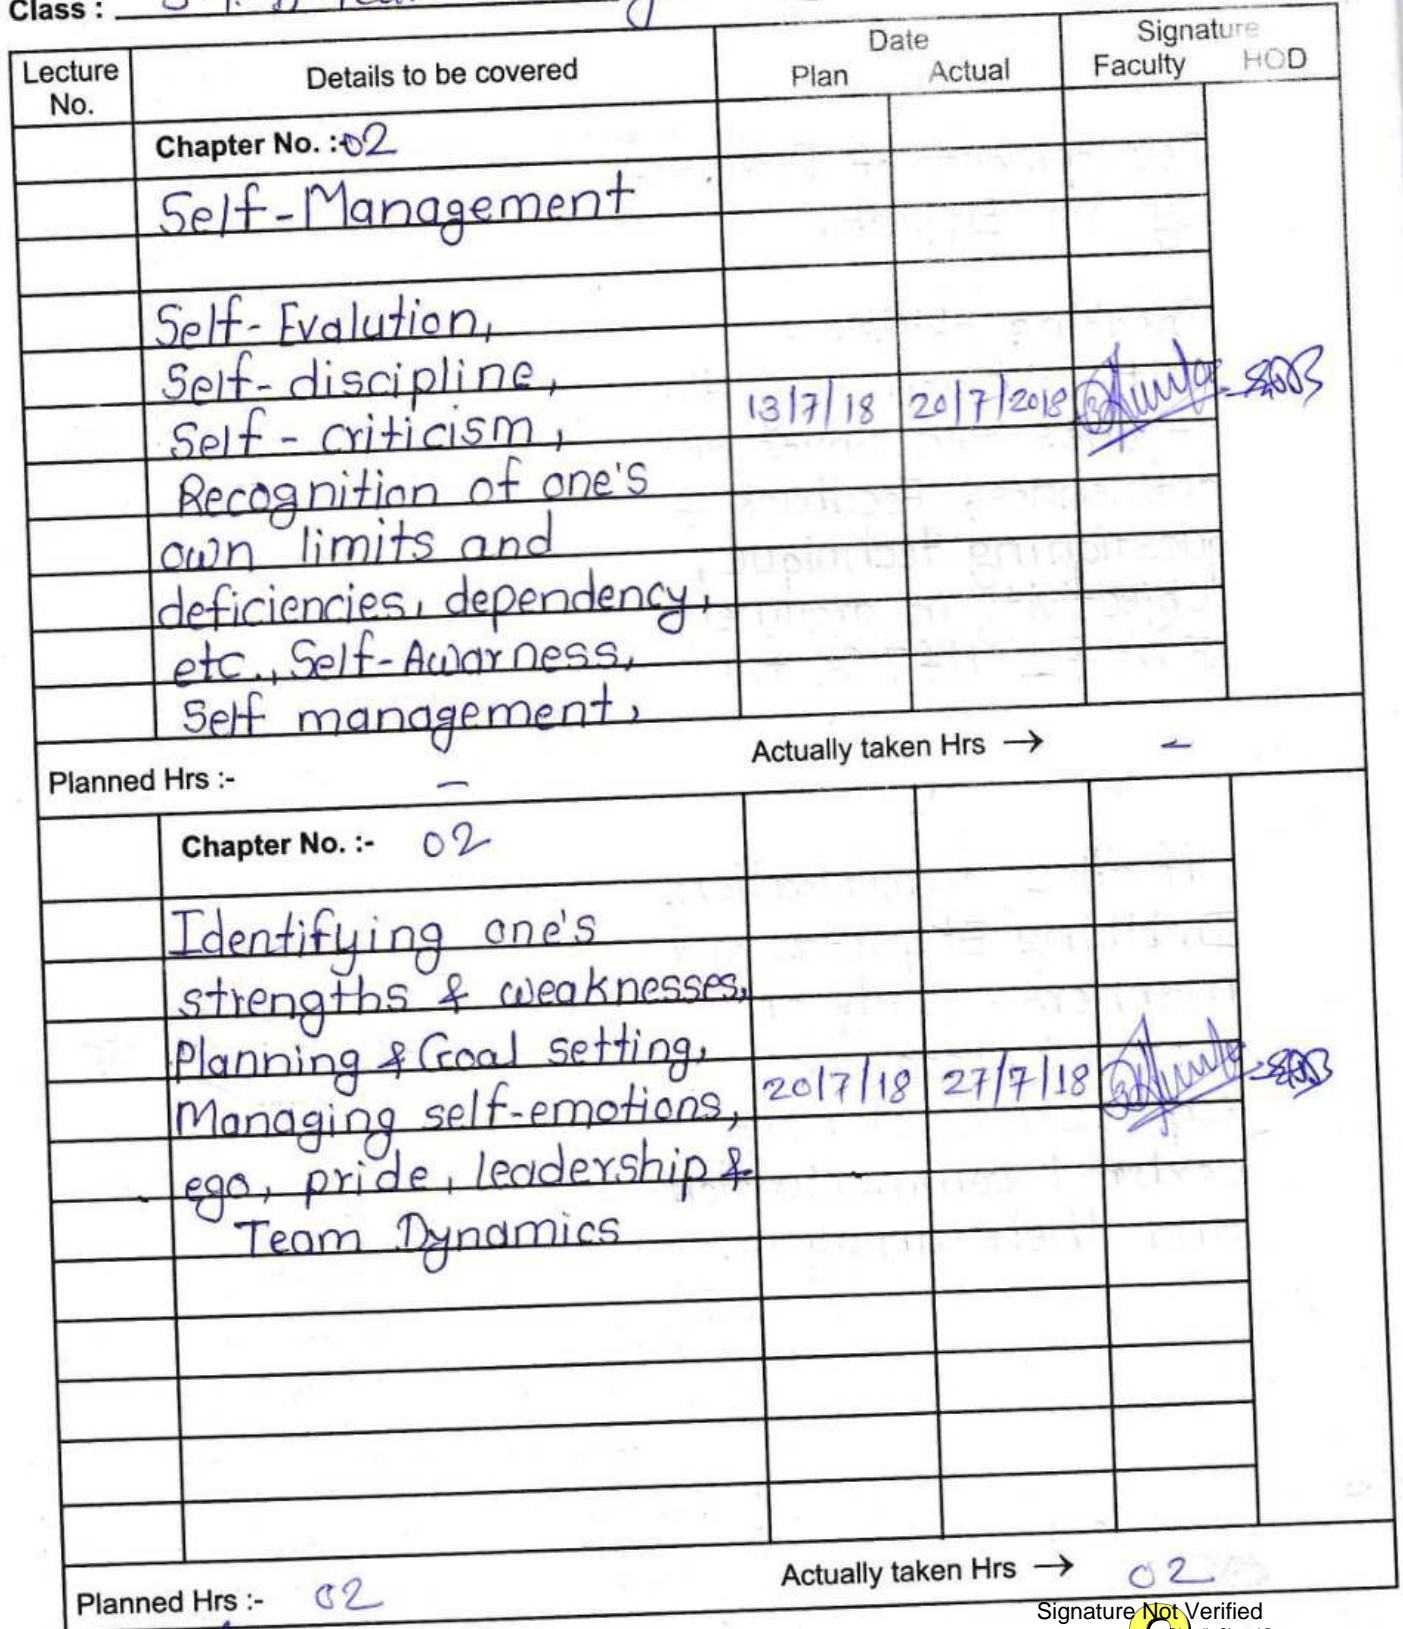 Class :
Lecture No. Details to be covered Date Plan Actual Signature Faculty HOD
Chapter No. :- 02
Self-Management
Self-Evalution,
Self-discipline,
Self-criticism,
13/7/18 20/7/2018
Recognition of one's
own limits and
deficiencies, dependency,
etc., Self-Awarness,
Self management,
Planned Hrs :- – Actually taken Hrs → –
Chapter No. :- 02
Identifying one's
strengths & weaknesses,
Planning & Goal setting,
Managing self-emotions,
20/7/18 27/7/18
ego, pride, leadership &
Team Dynamics
Planned Hrs :- 02 Actually taken Hrs → 02
Signature Not Verified